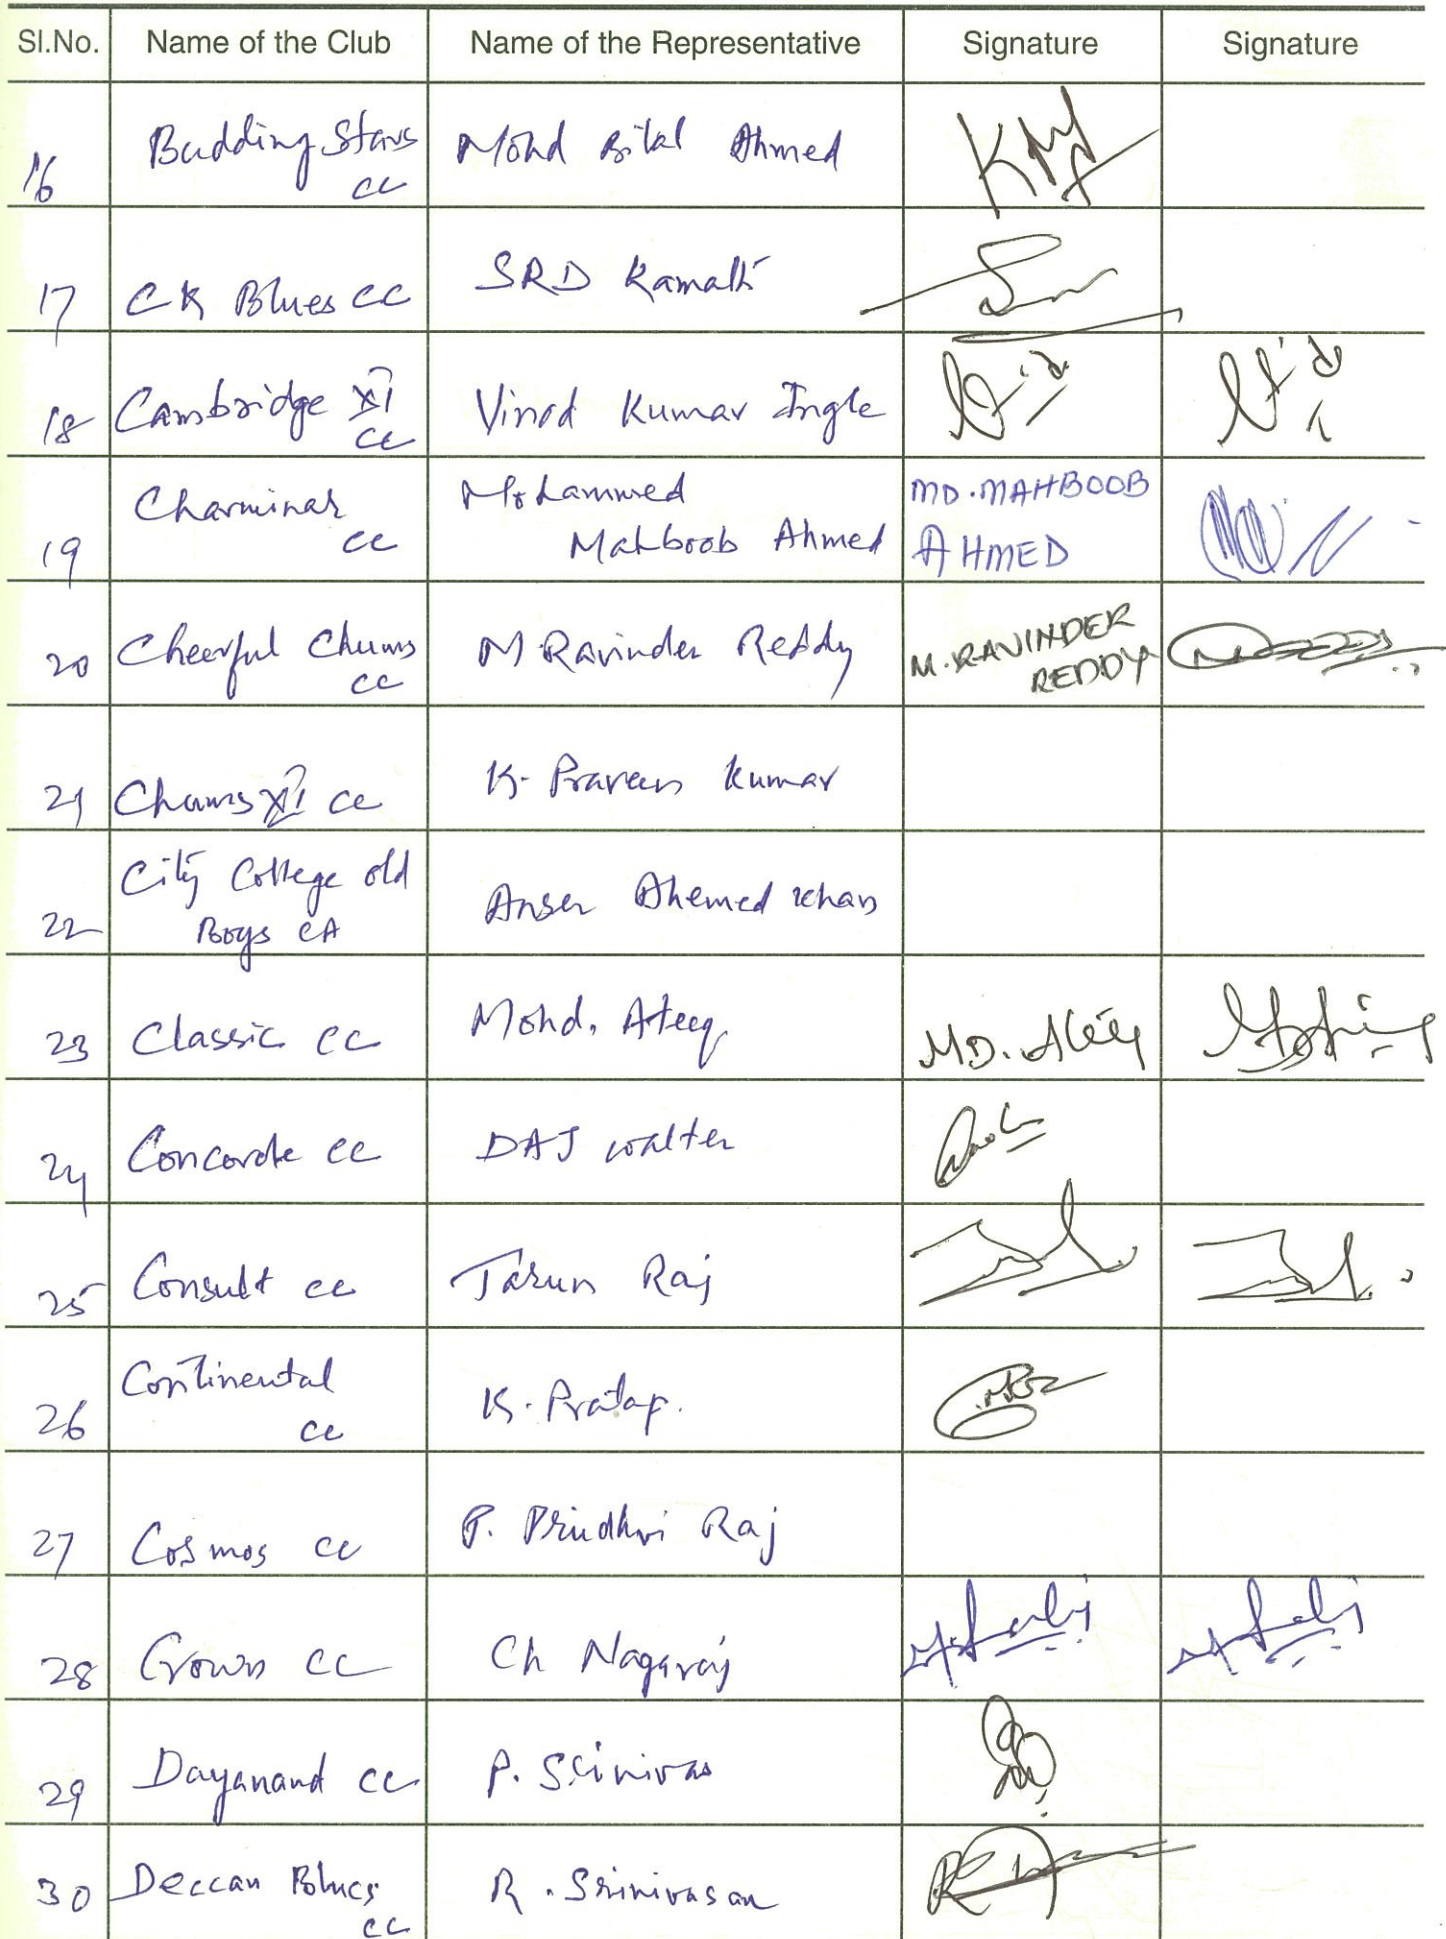 Sl.No. Name of the Club Name of the Representative Signature Signature
16 Budding Stars CC Mohd Bilal Ahmed
17 CK Blues CC SRD Kamath
18 Cambridge XI CC Vinod Kumar Ingle
19 Charminar CC Mohammed Mahboob Ahmed MD. MAHBOOB AHMED
20 Cheerful Chums CC M Ravinder Reddy M. RAVINDER REDDY
21 Chums XI CC K. Praveen Kumar
22 City College old Boys CA Anser Ahemed Khan
23 Classic CC Mohd. Ateeq MD. Ateeq
24 Concorde CC DAJ Walter
25 Consult CC Tarun Raj
26 Continental CC K. Pratap.
27 Cosmos CC P. Prudhvi Raj
28 Crown CC Ch Nagaraj
29 Dayanand CC P. Srinivas
30 Deccan Blues CC R. Srinivasan